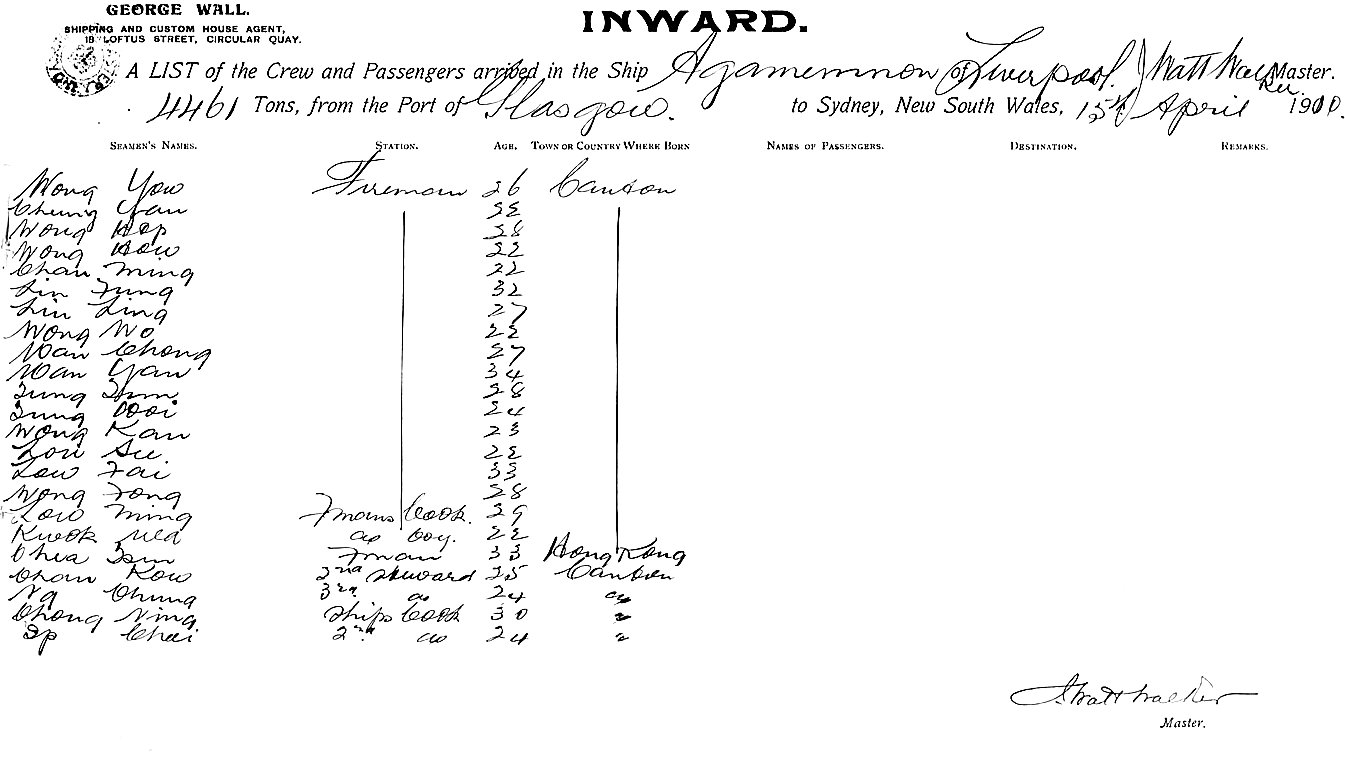 GEORGE WALL.
SHIPPING AND CUSTOM HOUSE AGENT,
18 LOFTUS STREET, CIRCULAR QUAY.
INWARD.
A LIST of the Crew and Passengers arrived in the Ship Agamemnon of Liverpool. Watt Walker Master.
4461 Tons, from the Port of Glasgow. to Sydney, New South Wales, 15th April 1910.
SEAMEN'S NAMES. STATION. AGE. TOWN OR COUNTRY WHERE BORN NAMES OF PASSENGERS. DESTINATION. REMARKS.
Wong Yow Fireman 26 Canton
Cheung Yan 22
Wong Hop 28
Wong How 22
Chan Ming 22
Lin Fung 32
Lin Ling 27
Wong Wo 22
Wan Chong 27
Wan Yan 34
Tung 28
Tung 24
Wong Kan 23
Lou Su. 22
Low Fai 33
Wong Fong 28
Low Ming Fmans Cook. 29
Kwok do boy. 22
Chea Fman 33 Hong Kong
Chan Kow 2nd Steward 25 Canton
Ng Chung 3rd do 24 do
Chong Ning Ships Cook 30 "
Ip Chai 2nd do 24 "
Watt Walker
Master.